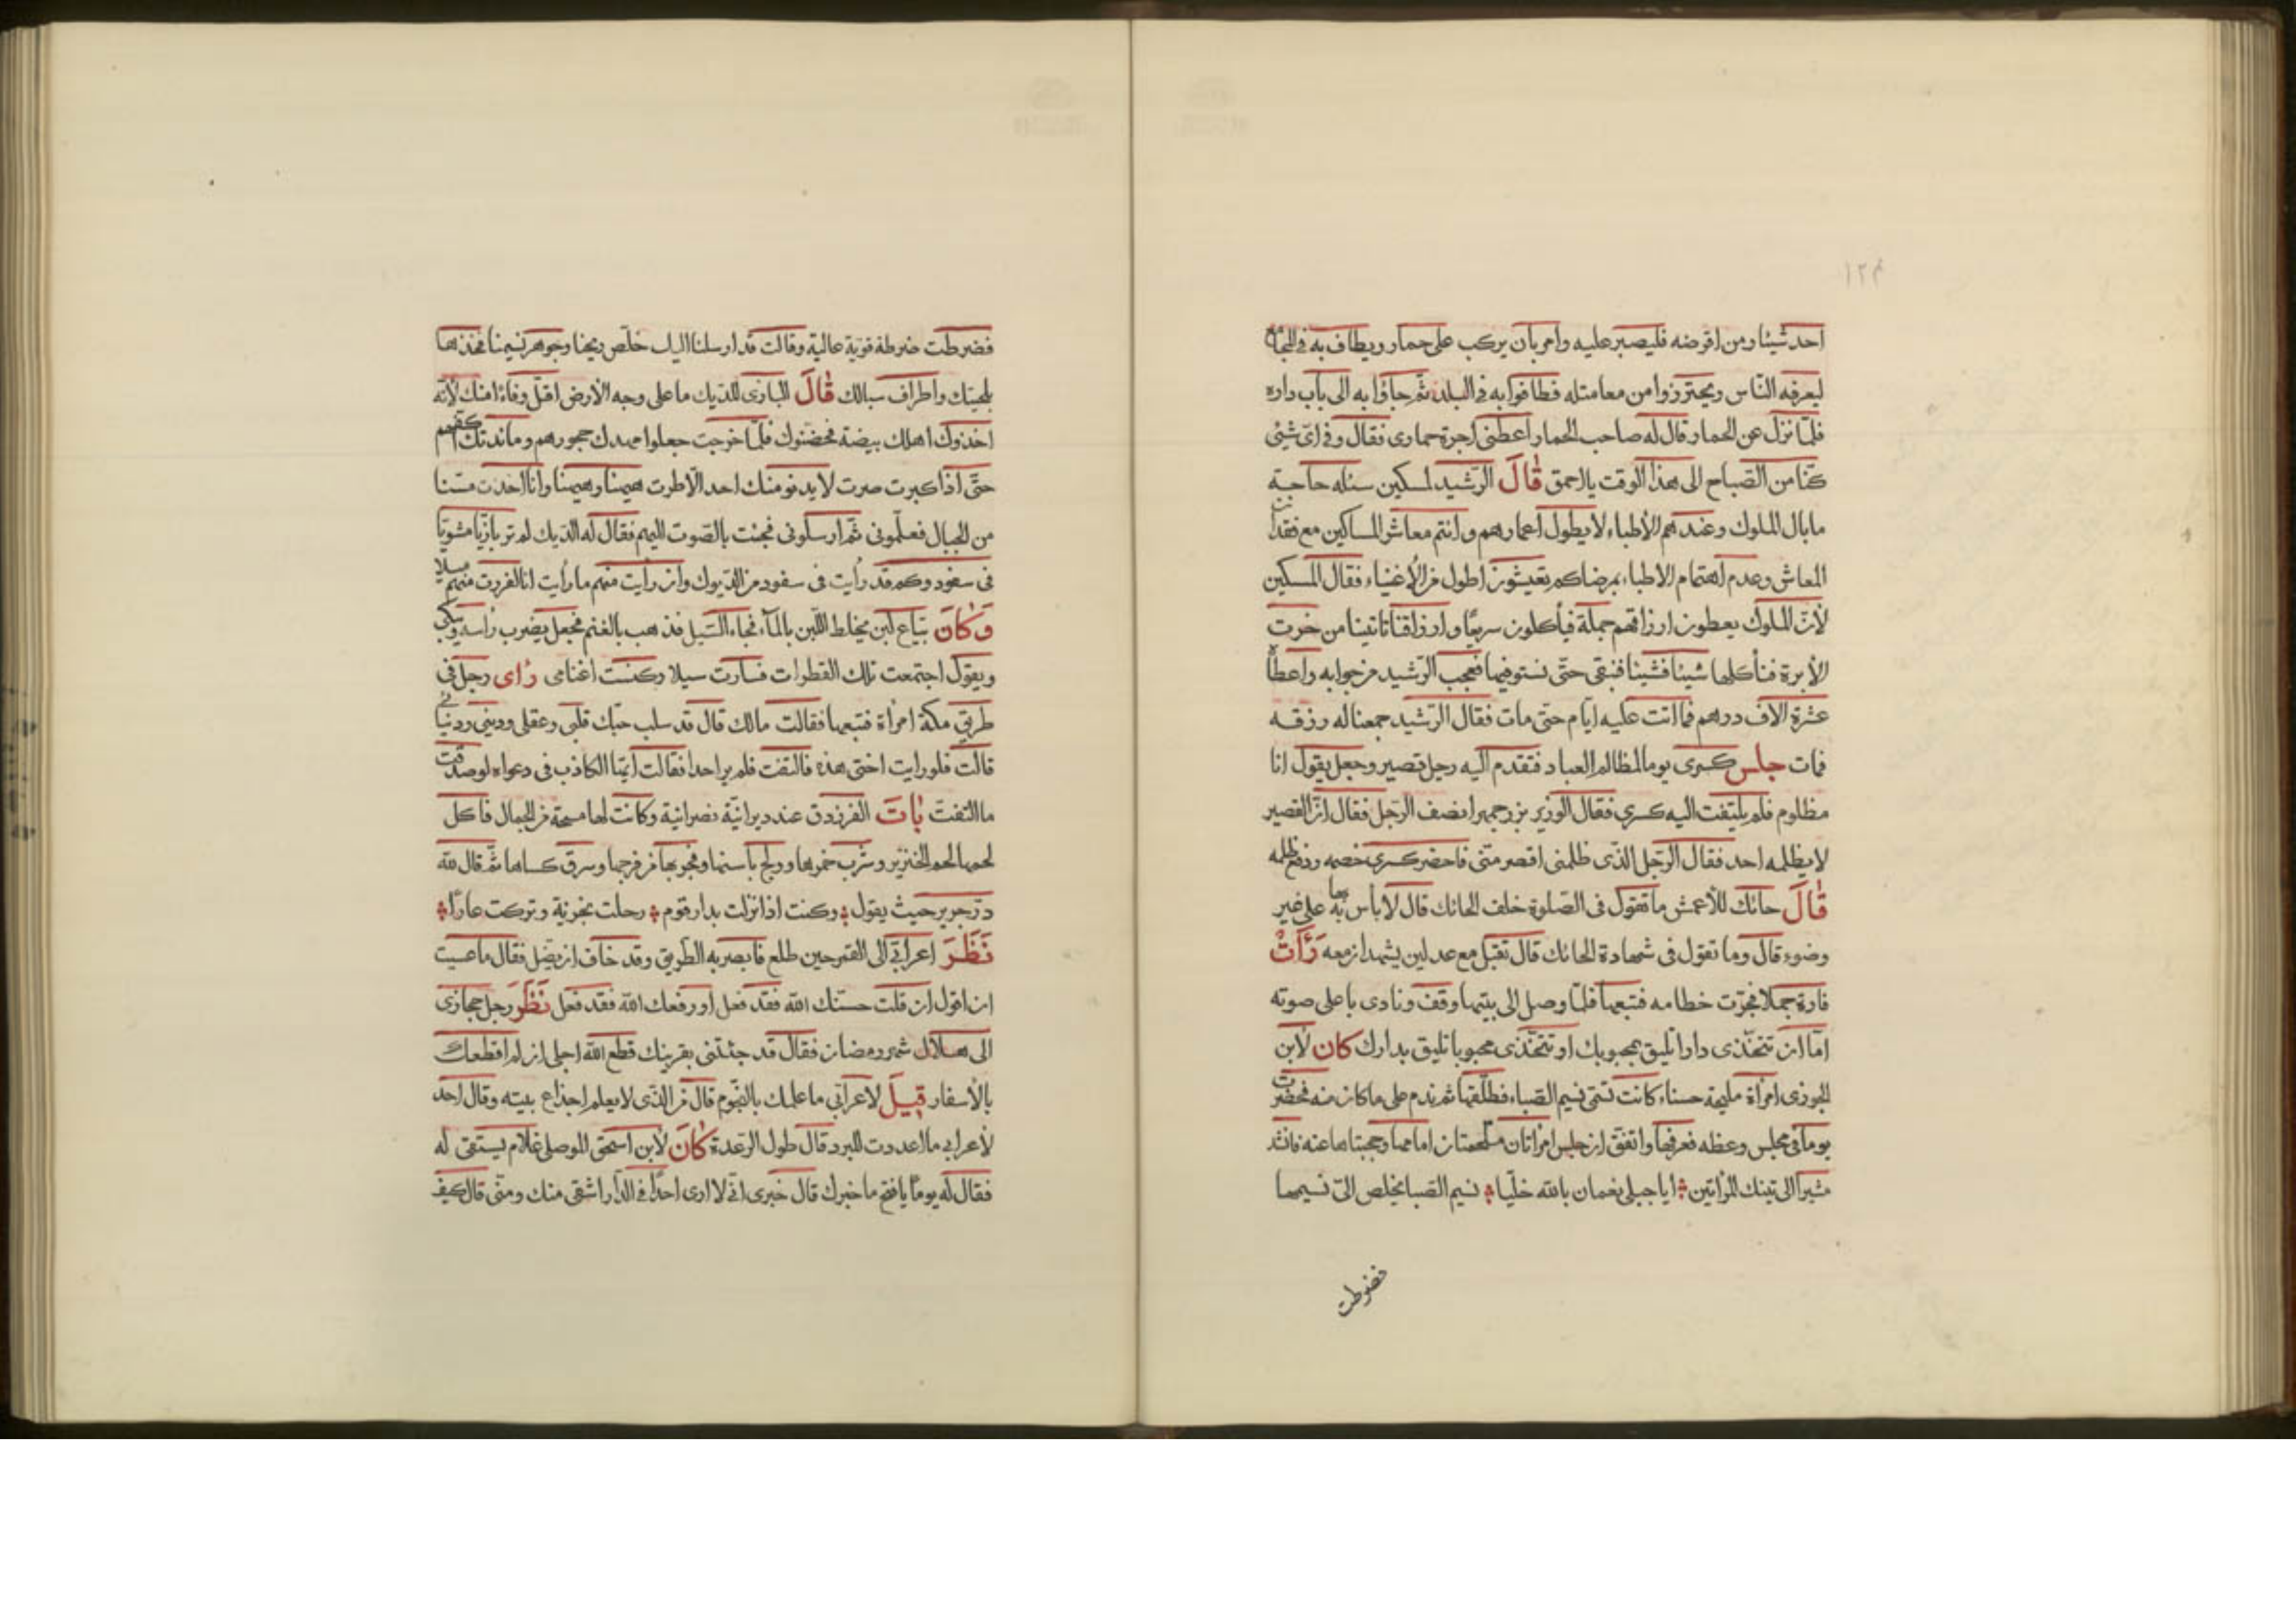 ١٢٤
احد شيئا ومن اقرضه فليصبر عليه وامر بان يركب على حمار ويطاف به في
ليعرفه النّاس ويحترزوا من معاملته فطافوا به في البلد ثمّ جاؤا به الى باب داره
فلمّا نزل عن الحمار قال له صاحب الحمار اعطنى اجرة حمارى فقال وفى اىّ شيئ
كنّا من الصّباح الى هذا الوقت يا احمق قَالَ الرّشيد لمسكين سئله حاجة
ما بال الملوك وعندهم الأطباء لا يطول اعمارهم وانتم معاشر المساكين مع فقد
المعاش وعدم اهتمام الاطباء بمرضاكم تعيشون اطول من الأغنياء فقال المسكين
لأنّ الملوك يعطون ارزاقهم جملة فيأكلون سريعًا وارزاقنا تاتينا من خرت
الأبرة فنأكلها شيئا فشيئا فنبقى حتّى نستوفيها فعجب الرّشيد من جوابه واعطا
عشرة الاف درهم فما اتت عليه ايّام حتّى مات فقال الرّشيد جمعنا له رزقه
فمات جلس كسرى يوما لمظالم العباد فتقدم اليه رجل قصير وجعل يقول انا
مظلوم فلم يلتفت اليه كسرى فقال الوزير بزرجمهر انصف الرّجل فقال انّ القصير
لا يظلمه احد فقال الرّجل الذّى ظلمنى اقصر منّى فاحضر كسرى خصمه ورفع ظلمه
قَالَ حائك للأعمش ما تقول فى الصّلوة خلف الحائك قال لا بأس بها على غير
وضوء قال وما تقول فى شهادة الحائك قال تقبل مع عدلين يشهدان معه رَأَتْ
فارة جملا فجرّت خطامه فتبعها فلمّا وصل الى بيتها وقف ونادى باعلى صوته
امّا ان تتخذّى دارا تليق بمحبوبك او تتخّذى محبوبا تليق بدارك كان لأبن
الجوزى امرأة مليحة حسناء كانت تسمّى نسيم الصّباء فطلّقها ثم ندم على ما كان منه فحضرت
يوما فى مجلس وعظه فعرفها واتفق ان جلس امرأتان امامها وحجبتاها عنه فانشد
مشيرا الى تينك المرأتين ايا جبلى نعمان بالله خلّيا نسيم الصّبا يخلص الىّ نسيمها
فضرطت
فضرطت ضرطة قوية عالية وقالت قد ارسلنا اليك خلّص ريحنا وجوهر نسيمنا فخذها
بلحيتك واطراف سبالك قَالَ البازى للدّيك ما على وجه الأرض اقلّ وفاءً منك لأنّه
اخذوك اهلك بيضة فحضنوك فلمّا خرجت جعلوا مهدك حجورهم ومائدتك اكفّهم
حتّى اذا كبرت صرت لا يدنو منك احد الّا طرت هيهنا وهيهنا وانا اخذت مسنّا
من الجبال فعلّمونى ثمّ ارسلونى فجئت بالصّوت اليهم فقال له الدّيك لم تر بازيّا مشويّا
فى سفود وكم قد رأيت فى سفود من الدّيوك وان رأيت منهم ما رأيت انا لفررت منهم
وَكَانَ بيّاع لبن يخلط اللّبن بالمآء فجاء السّيل فذهب بالغنم فجعل يضرب رأسه ويبكى
ويقول اجتمعت تلك القطرات فسارت سيلا وكنست اغنامى رَاى رجل فى
طريق مكّة امرأة فتبعها فقالت مالك قال قد سلب حبّك قلبى وعقلى ودينى ودنيائى
قالت فلو رايت اختى هذه فالتفت فلم ير احدا فقالت ايّها الكاذب فى دعواه لو صدقت
ما التفتت بَاتَ الفرزدق عند ديرانيّة نصرانية وكانت لها مسحة من الجمال فاكل
لحمها لحم الخنزير وشرب خمرها وسرق كساها ثمّ قال للّه
درّ جرير حيث يقول وكنت اذا نزلت بدار قوم رحلت بخزية وتركت عارًا
نَظَرَ اعرابىّ الى القمر حين طلع فابصر به الطّريق وقد خاف ان يضّل فقال ما عسيت
ان اقول ان قلت حسّنك اللّه فقد فعل او رفعك اللّه فقد فعل نَظَرَ رجل حجازى
الى هلال شهر رمضان فقال قد جئتنى بقرينك قطع اللّه اجلى ان لم اقطعك
بالأسفار قِيلَ لاعرابّى ما علمك بالنّجوم قال من الذّى لا يعلم اجذاع بيته وقال احد
لأعرابى ما اعددت للبرد قال طول الرّعدة كَانَ لأبن اسحق الموصلى غلام يستقى له
فقال له يومًا يا فتح ما خبرك قال خبرى انّى لا ارى احدًا فى الدّار اشقى منك ومنّى قال كيف